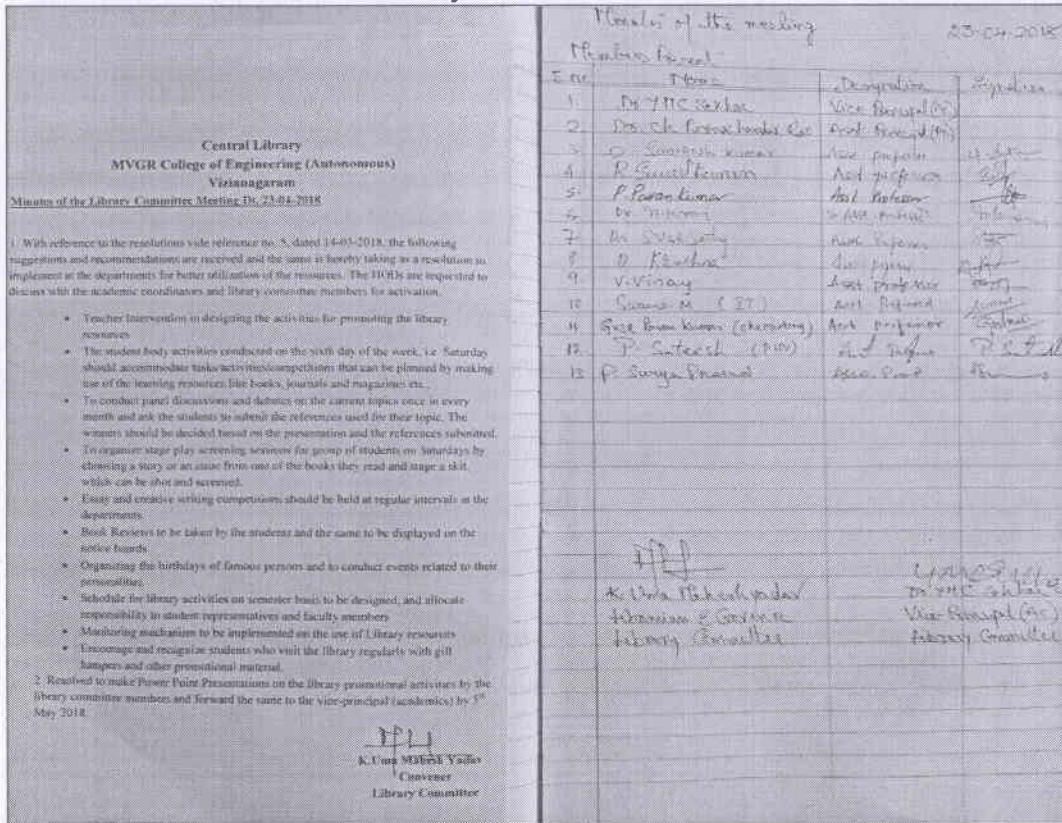 Central Library
MVGR College of Engineering (Autonomous)
Vizianagaram
Minutes of the Library Committee Meeting Dt. 23-04-2018
1. With reference to the resolutions vide reference no. 5, dated 14-03-2018, the following
suggestions and recommendations are received and the same is hereby taking as a resolution to
implement in the departments for better utilization of the resources. The HODs are requested to
discuss with the academic coordinators and library committee members for activation.
• Teacher Intervention in designing the activities for promoting the library
resources
• The student body activities conducted on the sixth day of the week, i.e. Saturday
should accommodate tasks/activities/competitions that can be planned by making
use of the learning resources like books, journals and magazines etc.,
• To conduct panel discussions and debates on the current topics once in every
month and ask the students to submit the references used for their topic. The
winners should be decided based on the presentation and the references submitted.
• To organize stage play screening sessions for group of students on Saturdays by
choosing a story or an issue from one of the books they read and stage a skit,
which can be shot and screened.
• Essay and creative writing competitions should be held at regular intervals in the
departments.
• Book Reviews to be taken by the students and the same to be displayed on the
notice boards
• Organizing the birthdays of famous persons and to conduct events related to their
personalities.
• Schedule for library activities on semester basis to be designed, and allocate
responsibility to student representatives and faculty members
• Monitoring mechanism to be implemented on the use of Library resources
• Encourage and recognize students who visit the library regularly with gift
hampers and other promotional material.
2. Resolved to make Power Point Presentations on the library promotional activities by the
library committee members and forward the same to the vice-principal (academics) by 5th
May 2018.
K. Uma Mahesh Yadav
Convener
Library Committee
Minutes of the meeting 23-04-2018
Members Present
S.no Name Designation Signature
1. Dr YMC Sekhar Vice Principal
2.
3. Santosh Kumar Asst professor
4. R Asst professor
5. P. Pavan kumar Asst Professor
6. Dr
7.
8. Krishna
9. V. Vinay Asst professor
10 M (IT)
11 Pavan Kumar (chemistry) Asst professor
12 P. Sateesh
13 P. Surya Prasad
K. Uma Mahesh yadav Dr YMC Sekhar
Librarian & Convener Vice Principal
Library Committee Library Committee